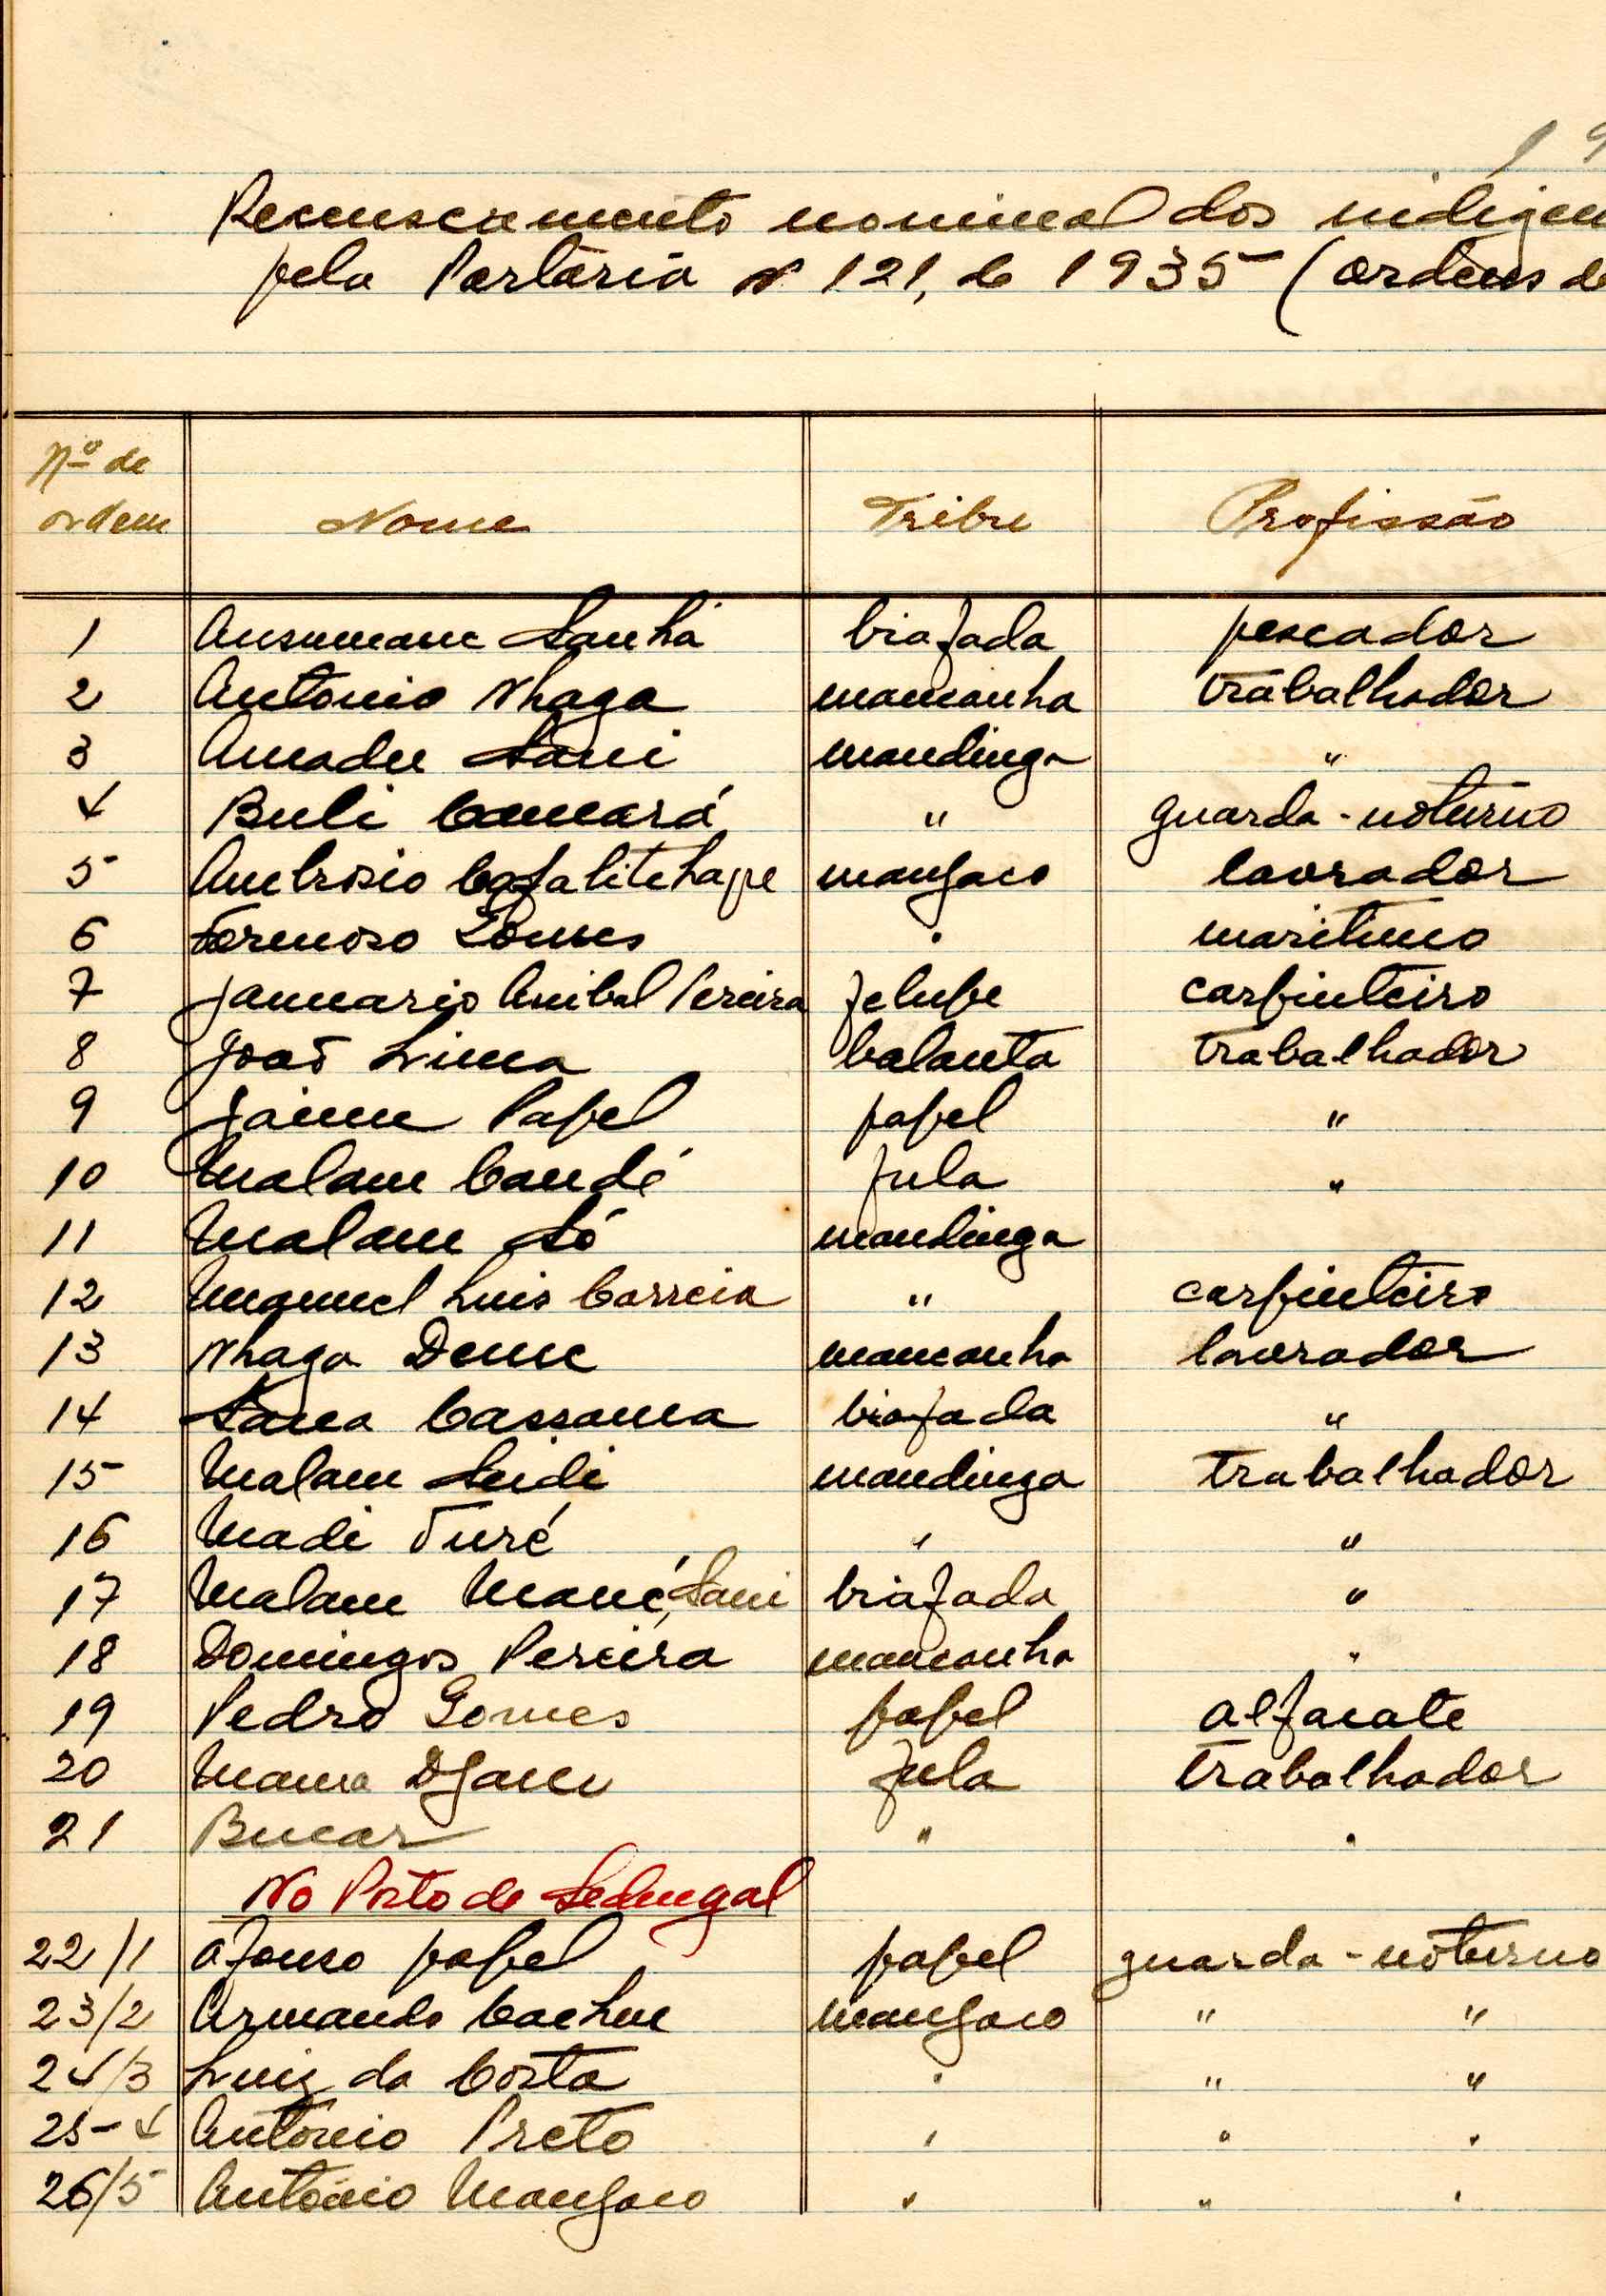 19
Recenseamento nominal dos indigen
pela Portaria nº 121, de 1935 (ordens de
Nº de
ordem Nome Tribu Profissão
1 Ansumane Sanhá biafada pescador
2 Antonio Nhaga mancanha trabalhador
3 Amadu Sani mandinga "
4 Buli Camará " guarda-noturno
5 Ambrosio Cafalitchape manjaco lavrador
6 Formoso Gomes " maritimo
7 Januario Anibal Pereira felupe carpinteiro
8 João Lima balanta trabalhador
9 Jaime Papel papel "
10 Malam Candé fula "
11 Malam Só mandinga
12 Manuel Luis Correia " carpinteiro
13 Nhaga Deme mancanha lavrador
14 Sana Cassama biafada "
15 Malam Seidi mandinga trabalhador
16 Madi Turé " "
17 Malam Mané, Sani biafada "
18 Domingos Pereira mancanha "
19 Pedro Gomes papel alfaiate
20 Mama Djam fula trabalhador
21 Bucar " "
No Porto de Sedengal
22/1 Afonso papel papel guarda-noturno
23/2 Armando Cachue manjaco " "
24/3 Luiz da Costa " " "
25-4 António Preto " " "
26/5 António Manjaco " " "